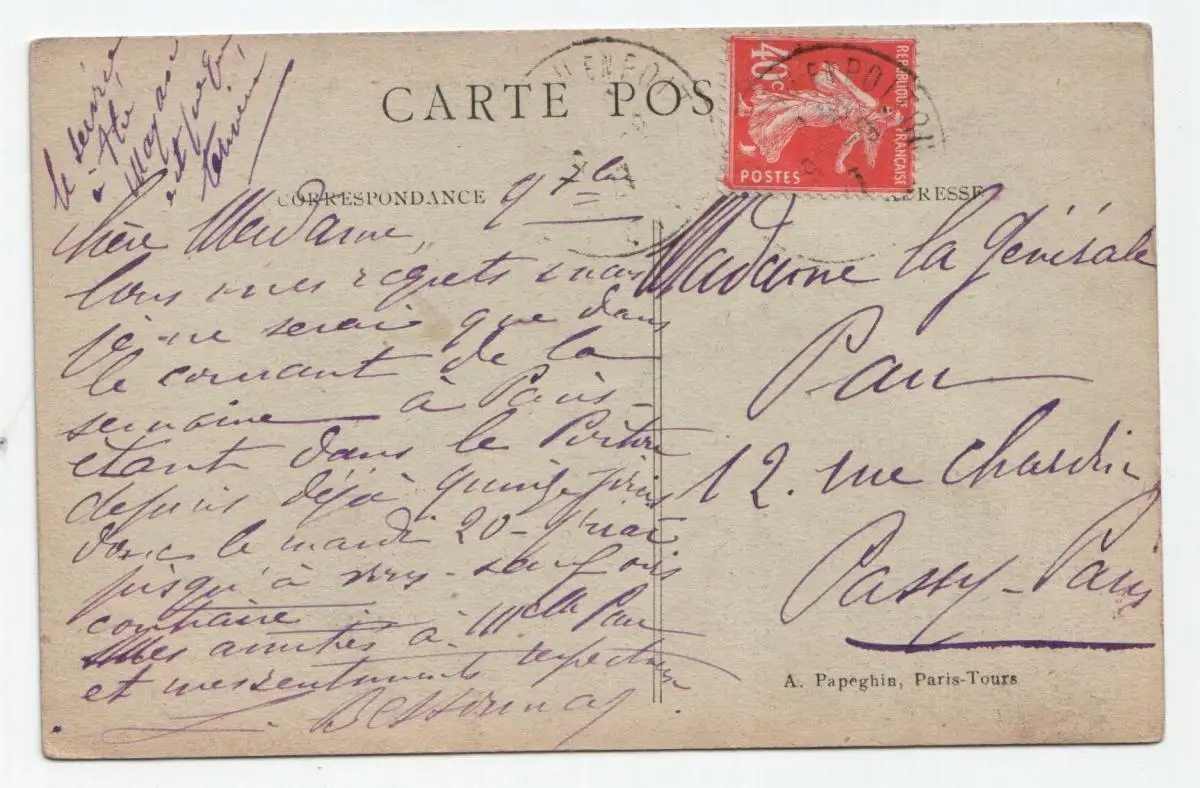 le service
à thé
Magasin
est presque
terminé
CARTE POS
CORRESPONDANCE
ADRESSE
40c
REPUBLIQUE FRANÇAISE
POSTES
9 7bre
Chère Madame,
tous mes regrets mais
je ne serai que dans
le courant de la
semaine à Paris -
étant dans le Poitou
depuis déjà quinze jours
donc le mardi 20 - j'irai
jusqu'à vous - sauf avis
contraire
Mes amitiés à Melle Pau
et mes sentiments respectueux
Madame la Générale
Pau
12. rue Chardin
Passy - Paris
A. Papeghin, Paris-Tours